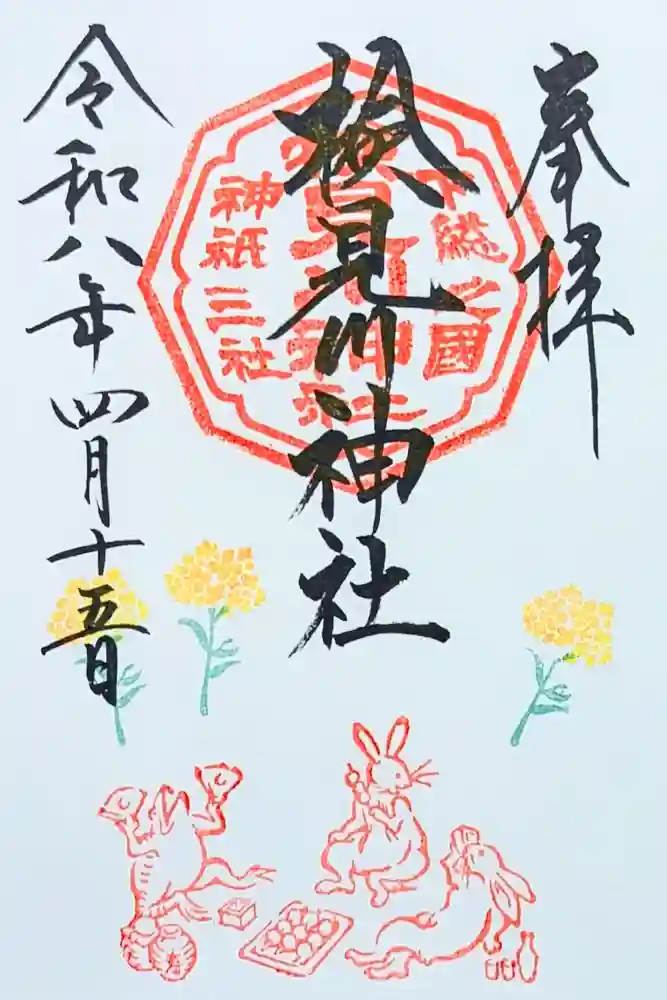 奉拝
下総之國
検見川神社
検見川神社
神祇三社
令和八年四月十五日